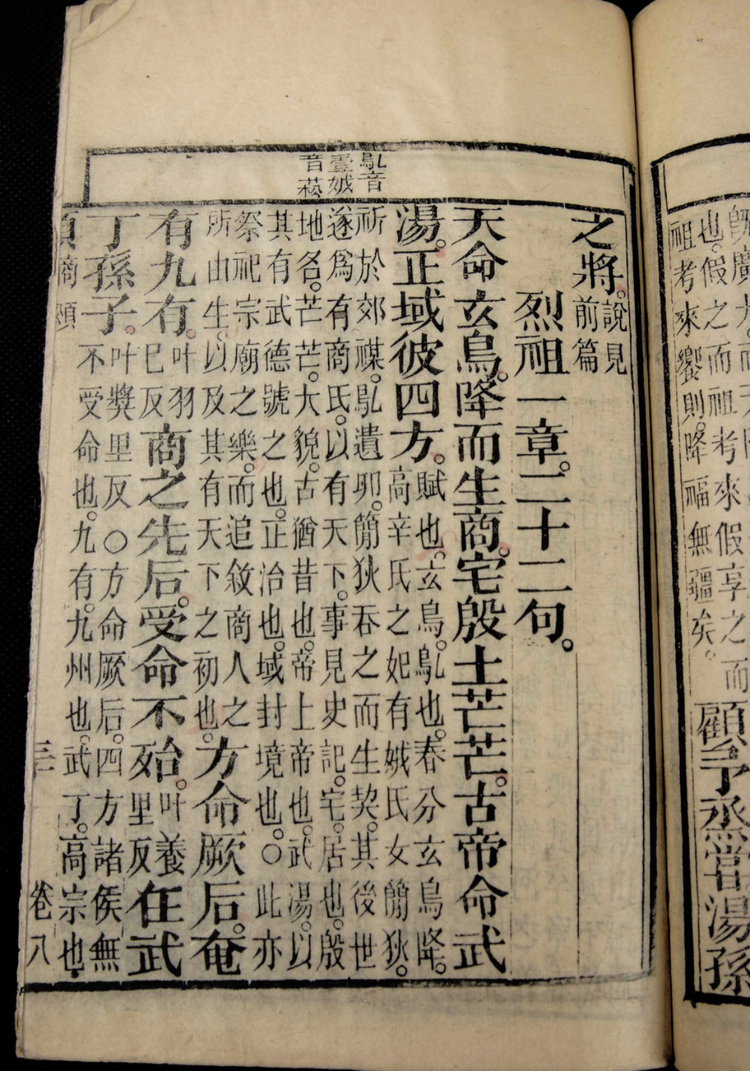 也。假之而祖考來假享之而
祖考來饗則。降福無疆矣。
顧予烝嘗湯孫
鳦音
壹娀
音菘
之將。說見
前篇
烈祖一章。二十二句。
天命玄鳥。降而生商。宅殷土芒芒。古帝命武
湯。正域彼四方。賦也。玄鳥。鳦也。春分玄鳥降。
高辛氏之妃有娀氏女簡狄。
祈於郊禖。鳦遺卵。簡狄吞之而生契。其後世
遂爲有商氏。以有天下。事見史記。宅。居也。殷
地名。芒芒。大貌。古猶昔也。帝上帝也。武湯。以
其有武德號之也。正治也。域封境也。○此亦
祭祀宗廟之樂。而追敘商人之
所由生。以及其有天下之初也。方命厥后。奄
有九有。叶羽
已反商之先后。受命不殆。叶養
里反在武
丁孫子。叶獎里反○方命厥后。四方諸侯無
不受命也。九有。九州也。武丁。高宗也。
商頌
卷八